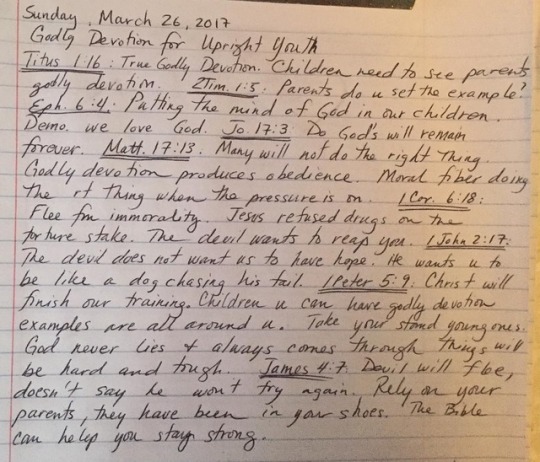 Sunday, March 26, 2017
Godly Devotion for Upright Youth
Titus 1:16: True Godly Devotion. Children need to see parents
godly devotion. 2Tim. 1:5: Parents do u set the example?
Eph. 6:4: Putting the mind of God in our children.
Demo. we love God. Jo. 17:3: Do God's will remain
forever. Matt. 17:13. Many will not do the right thing.
Godly devotion produces obedience. Moral fiber doing
the rt thing when the pressure is on. 1Cor. 6:18:
Flee fm immorality. Jesus refused drugs on the
torture stake. The devil wants to reap you. 1John 2:17:
The devil does not want us to have hope. He wants u to
be like a dog chasing his tail. 1Peter 5:9: Christ will
finish our training. Children u can have godly devotion
examples are all around u. Take your stand young ones.
God never lies & always comes through things will
be hard and tough. James 4:7. Devil will flee,
doesn't say he won't try again. Rely on your
parents, they have been in your shoes. The Bible
can help you stay strong.